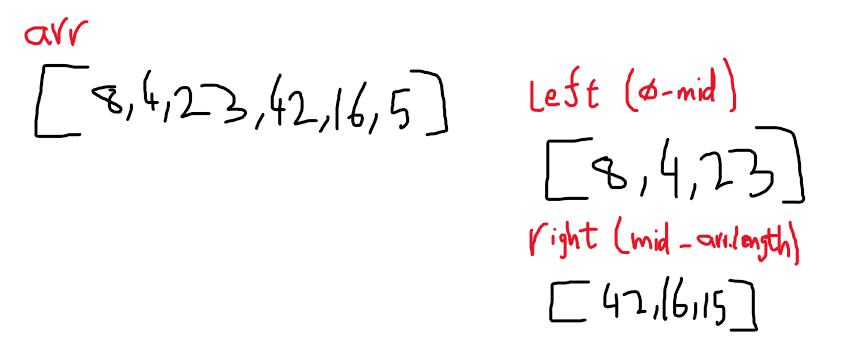 arr
[8,4,23,42,16,5]
Left (0-mid)
[8,4,23]
right (mid-arr.length)
[42,16,15]